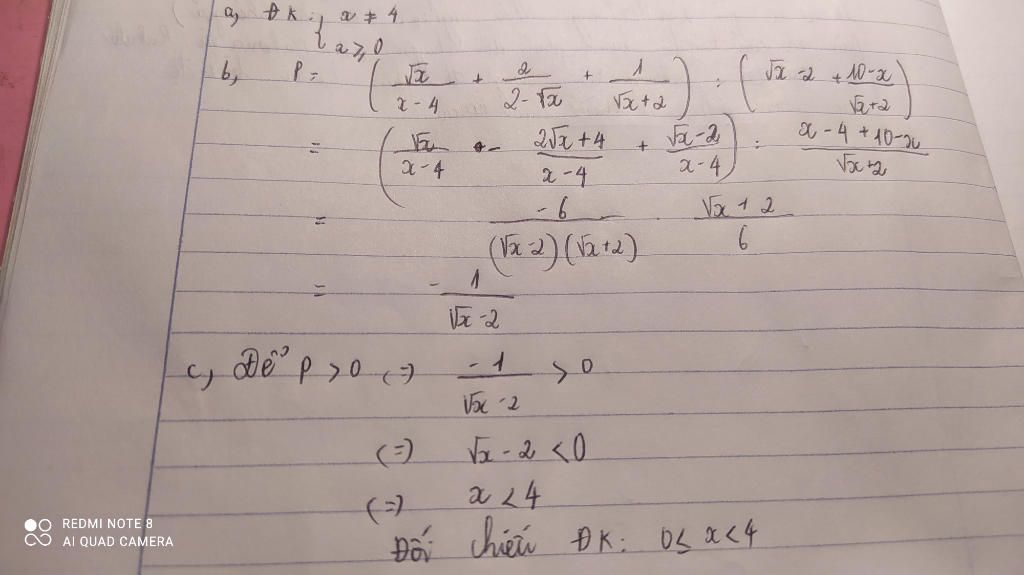 a, ĐK: { x ≠ 4
x ≥ 0
b, P = ( √x / (x - 4) + 2 / (2 - √x) + 1 / (√x + 2) ) : ( √x - 2 + (10 - x) / (√x + 2) )
= ( √x / (x - 4) - (2√x + 4) / (x - 4) + (√x - 2) / (x - 4) ) : (x - 4 + 10 - x) / (√x + 2)
= -6 / ((√x - 2)(√x + 2)) . (√x + 2) / 6
= - 1 / (√x - 2)
c, Để P > 0 (=) -1 / (√x - 2) > 0
(=) √x - 2 < 0
(=) x < 4
Đối chiếu ĐK: 0 ≤ x < 4
REDMI NOTE 8
AI QUAD CAMERA